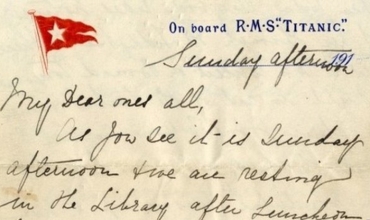 On board R·M·S "TITANIC".
191
Sunday afternoon
My Dear ones all,
As you see it is Sunday
afternoon & we are resting
in the Library after Luncheon